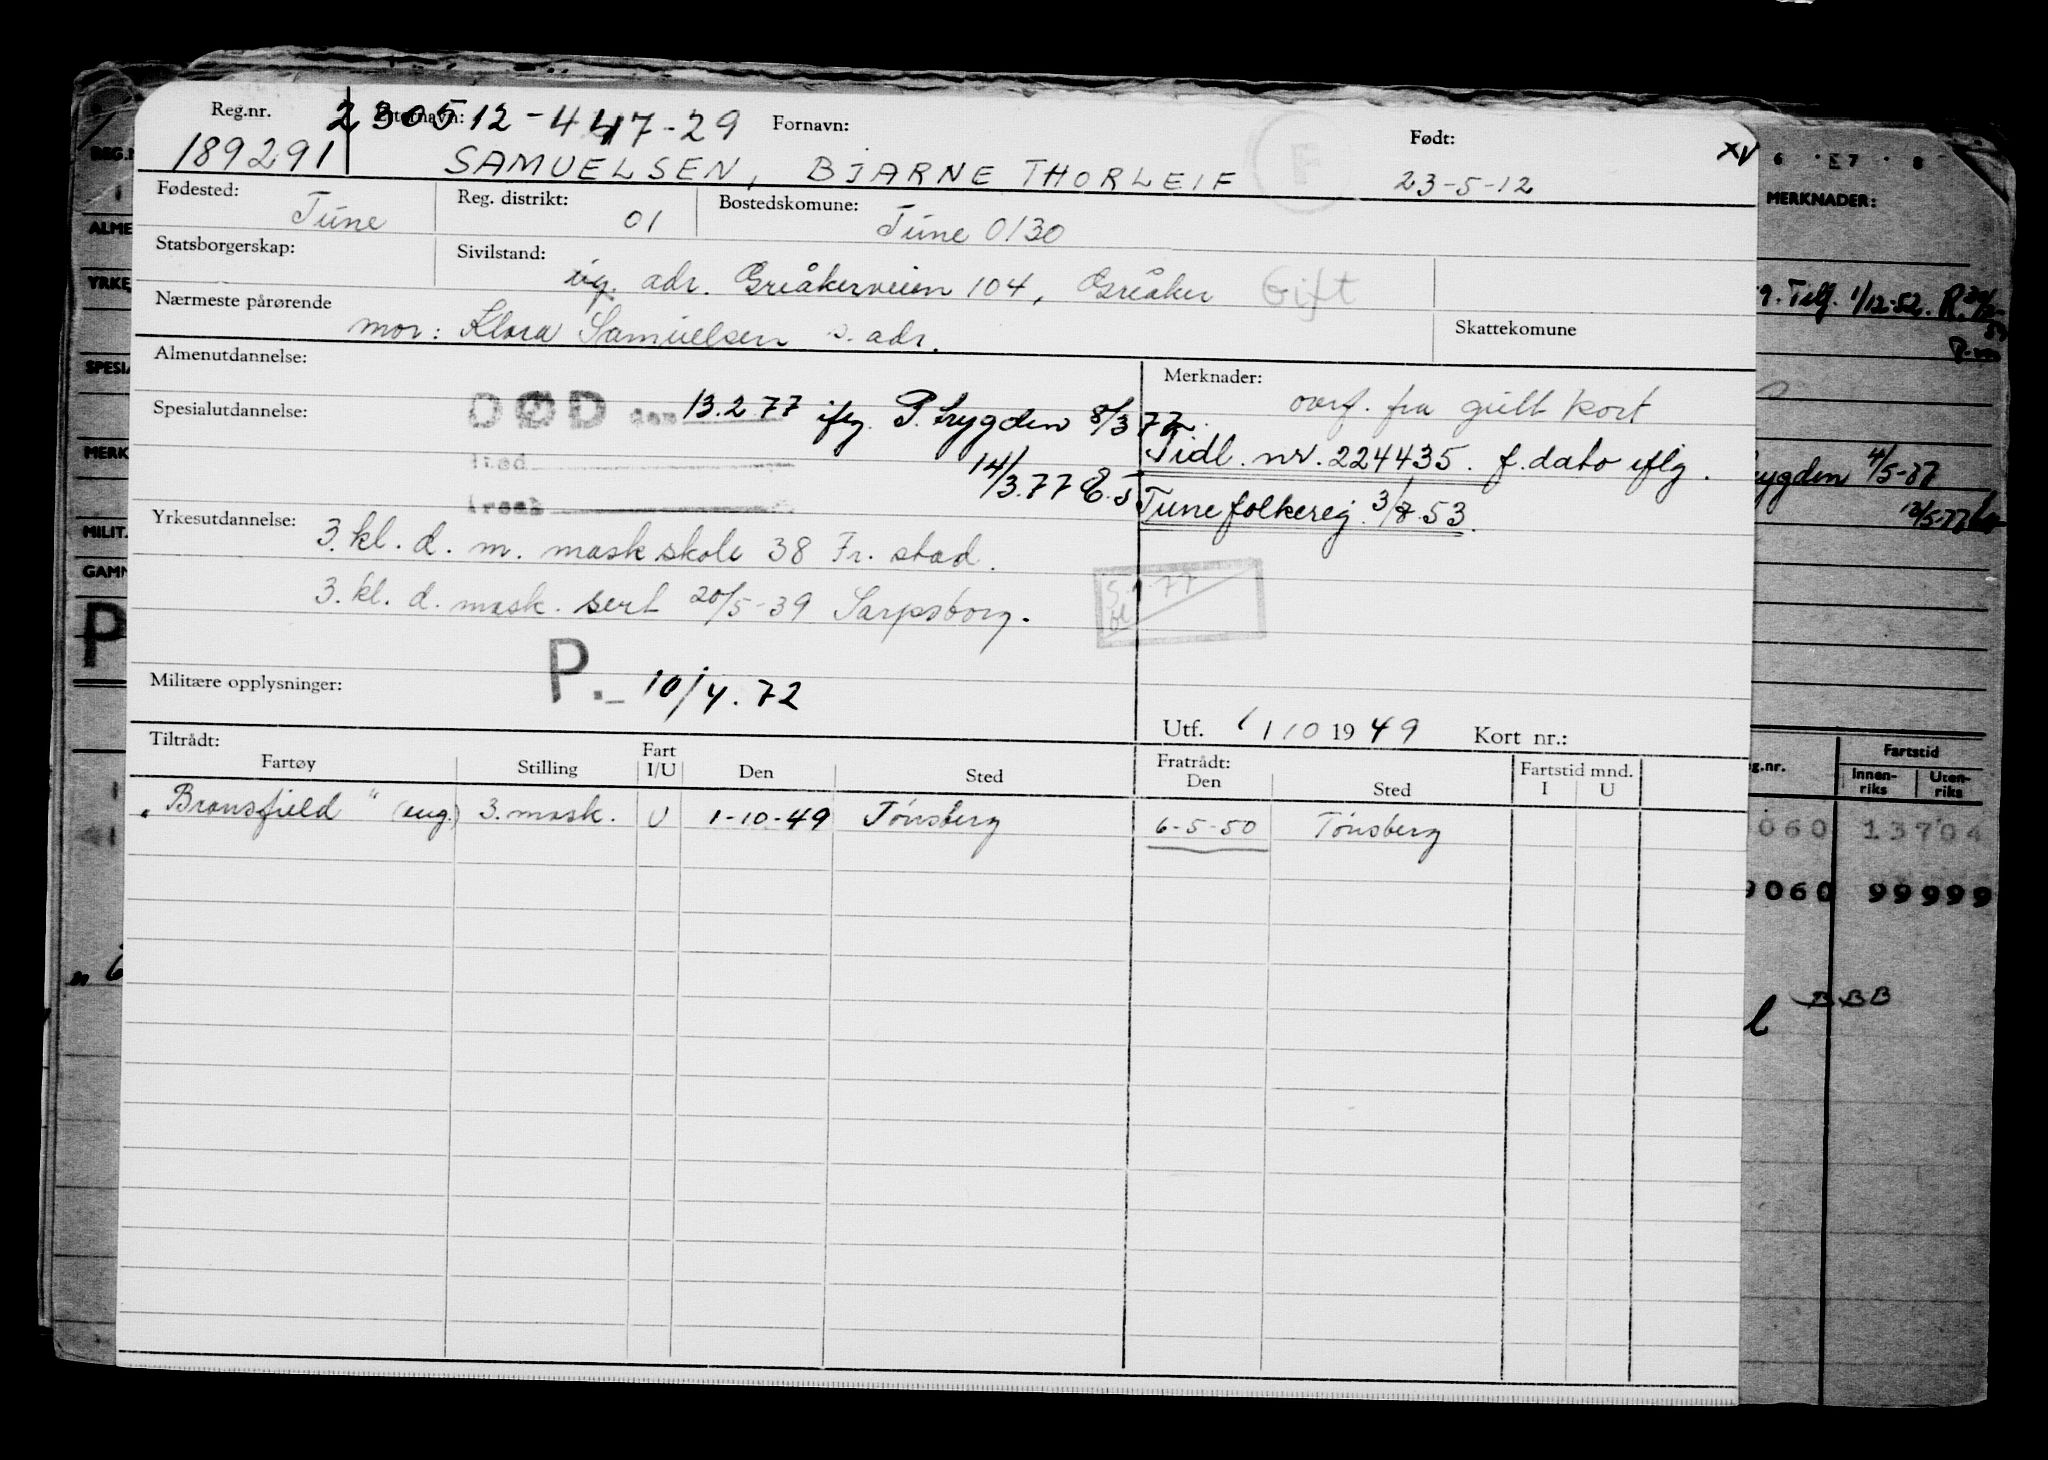 Reg.nr. 230512-44729 Etternavn: Fornavn: Født: XV
189291 SAMUELSEN, BJARNE THORLEIF F 23-5-12
Fødested: Tune Reg. distrikt: 01 Bostedskomune: Tune 0130
Statsborgerskap: Sivilstand: ug. adr. Greåkerveien 104, Greåker Gift
Nærmeste pårørende mor: Klara Samuelsen s. adr. Skattekomune
Almenutdannelse: Merknader: overf. fra gult kort
Spesialutdannelse: DØD den 13.2.77 iflg. P.trygden 8/3 77.
Tidl. nr. 224435. f.dato iflg.
14/3.77 E.S
Tune folkereg. 3/8.53.
Yrkesutdannelse: 3. kl. d. m. maskskole 38 Fr.stad.
3. kl. d. mask. sert 20/5-39 Sarpsborg.
Militære opplysninger: P. 10/4.72
Utf. 1/10 1949 Kort nr.:
Tiltrådt: Fratrådt:
Fartøy Stilling Fart I/U Den Sted Den Sted Fartstid mnd. I U
"Bransfield" (eng.) 3. mask. U 1-10-49 Tønsberg 6-5-50 Tønsberg
REG.N
ALME
YRKE
SPESIA
MERK
MILIT.
GAMN
P
6 7 8
MERKNADER:
9. Tilf. 1/12-52.
trygden 4/5-77
12/5-77
g.nr. Fartstid
Innen-riks Uten-riks
060 13704
9060 99999
BBB